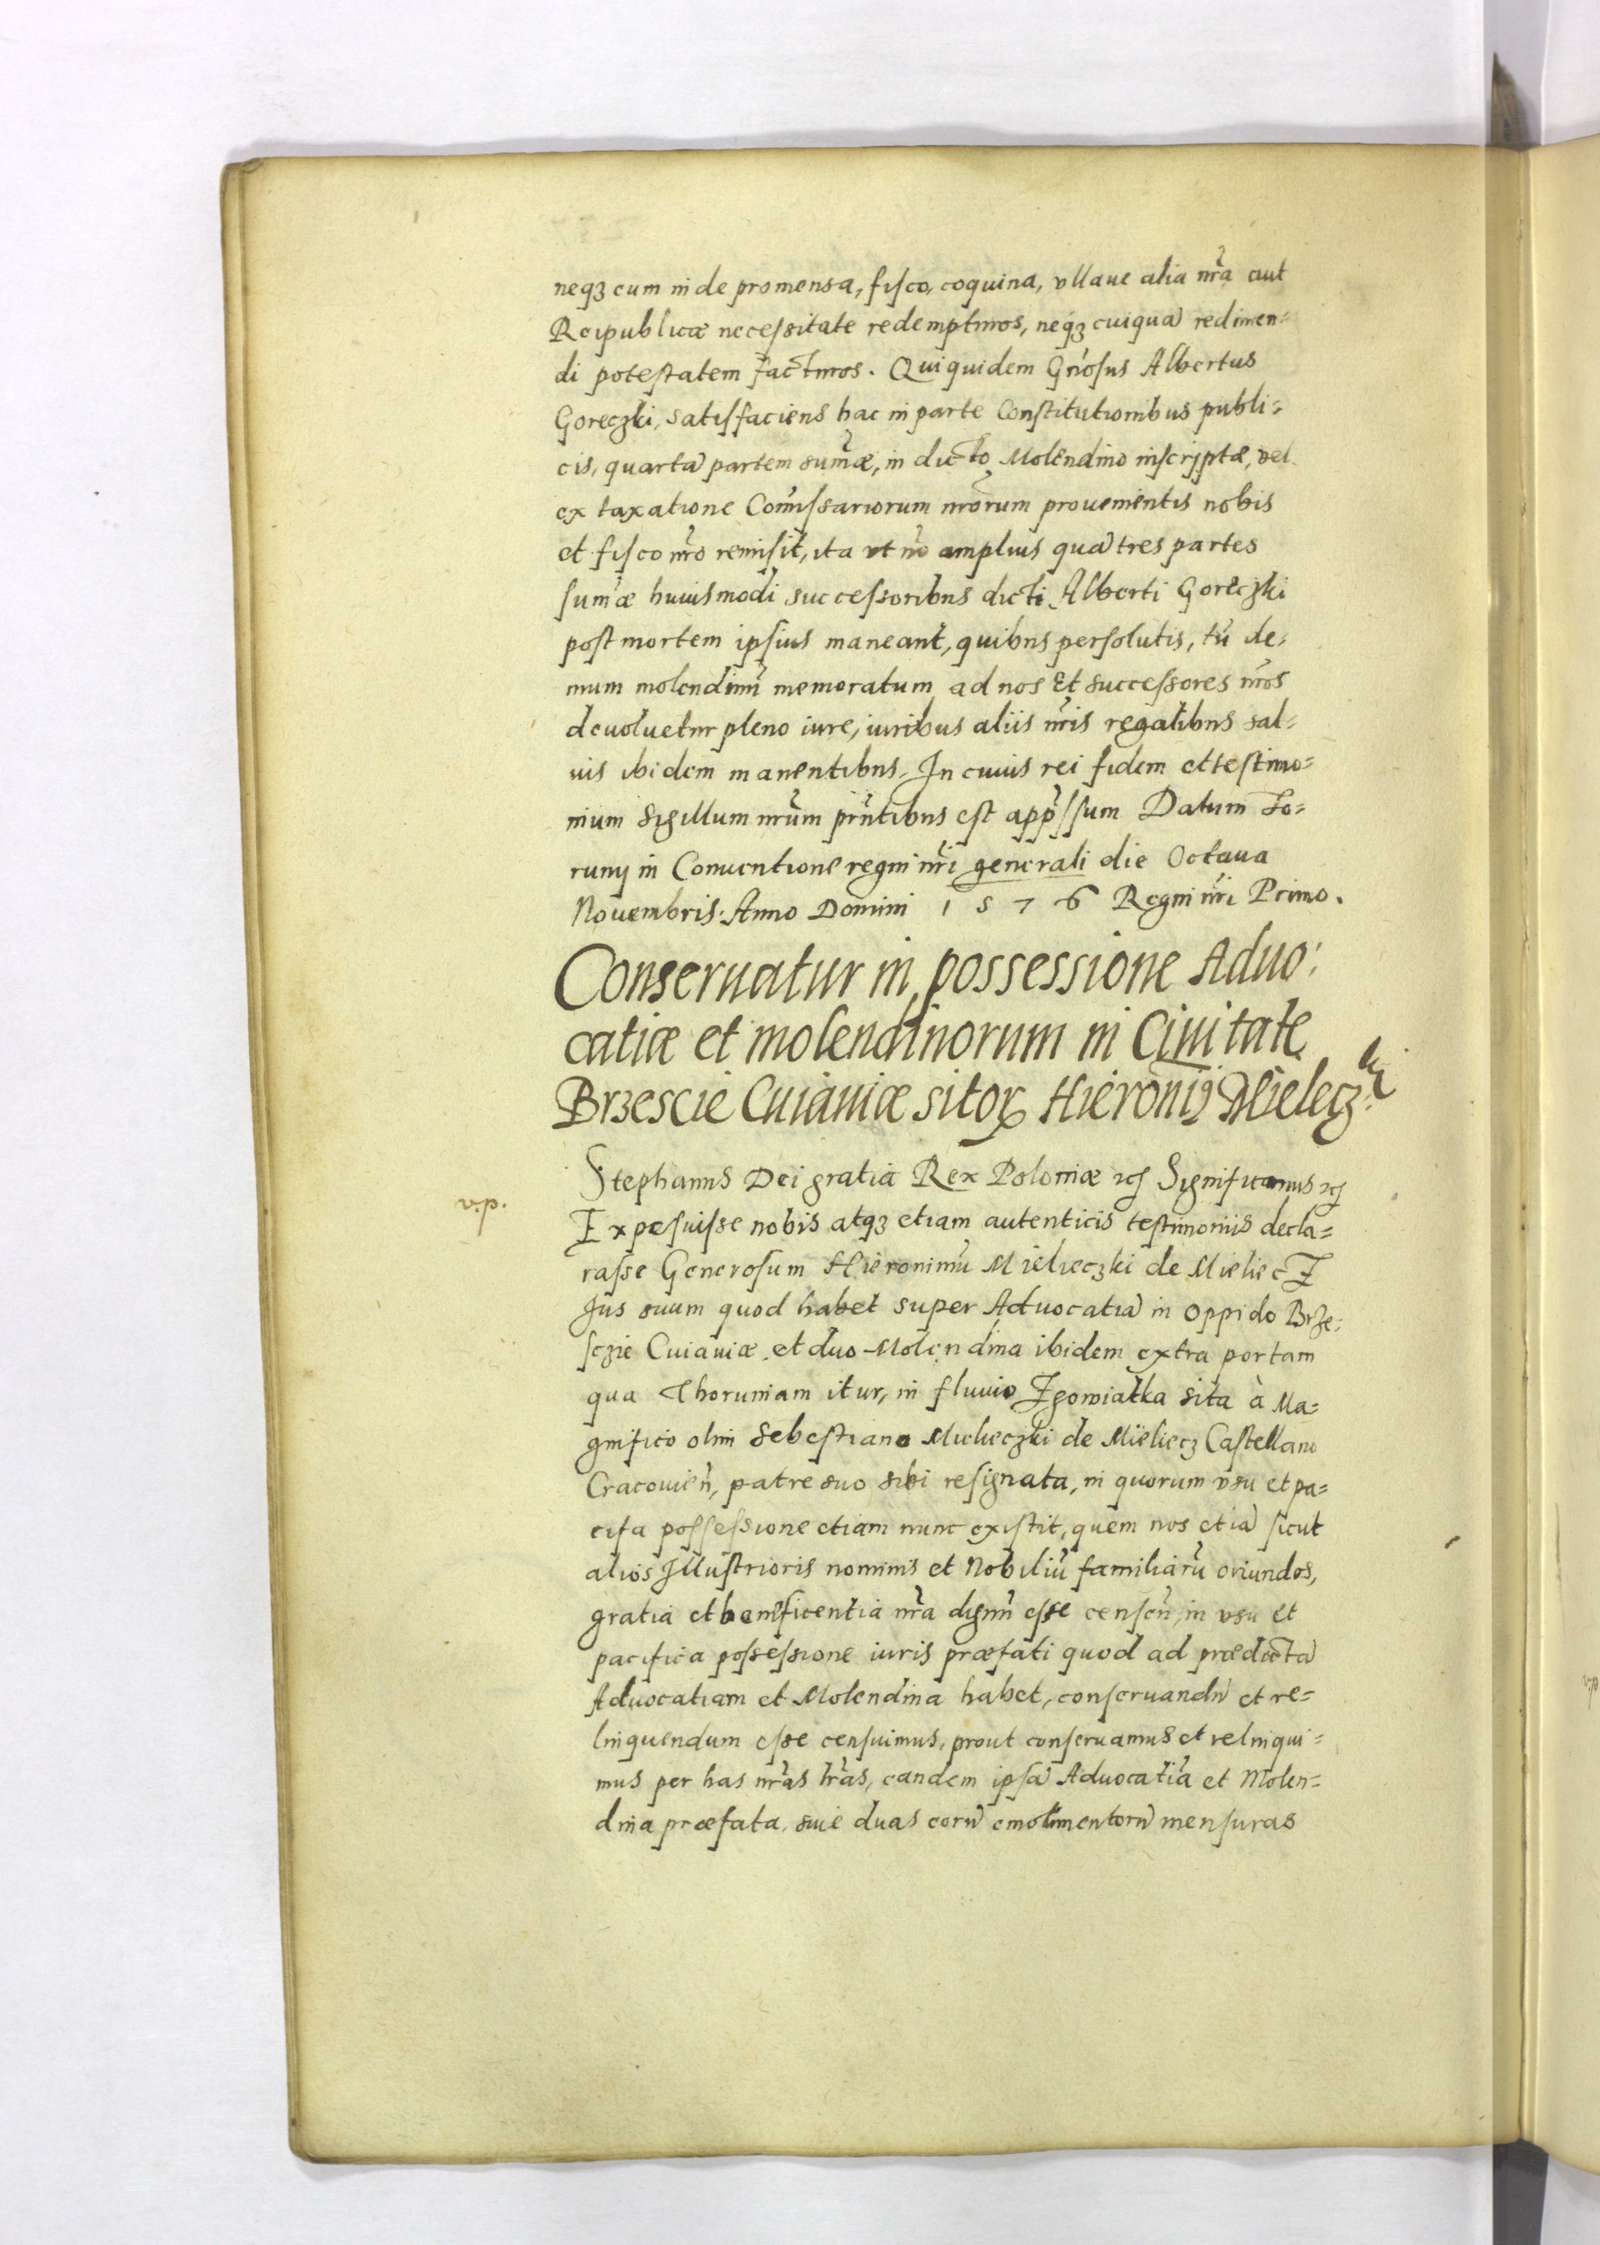 neqꝫ eum inde pro mensa, fisco, coquina, vllaue alia nr̃a aut
Reipublicæ necessitate redempturos, neqꝫ cuiquã redimen-
di potestatem facturos. Qui quidem Gñosus Albertus
Goreczki, satisfaciens hac in parte Constitutionibus publi-
cis, quartã partem sum̃æ, in dicto Molendino inscriptæ, vel
ex taxatione Com̃issariorum nr̃orum prouenientis nobis
et fisco nr̃o remisit, ita vt nõ amplius quã tres partes
sum̃æ huiusmodi successoribus dicti Alberti Goreczki
post mortem ipsius maneant, quibus persolutis, tũ de-
mum molendinũ memoratum ad nos et successores nr̃os
deuoluetur pleno iure, iuribus aliis nr̃is regalibus sal-
uis ibidem manentibus. In cuius rei fidem et testimo-
nium sigillum nr̃um prñtibus est app̃ssum Datum To-
runij in Conuentione regni nr̃i generali die Octaua
Nouembris. Anno Domini 1576 Regni nr̃i Primo.
Conseruatur in possessione Aduo-
catiæ et molendinorum in Ciuitate
Brzescie Cuiauiæ sitoꝝ Hieronijꝰ Mielecz: ki
Stephanus Dei gratia Rex Poloniæ ꝛcꝭ Significamus ꝛcꝭ
v.p.
Exposuisse nobis atqꝫ etiam autenticis testimoniis decla-
rasse Generosum Hieronimũ Mielieczki de Mieliecz
Jus suum quod habet super Aduocatiã in oppido Brze-
sczie Cuiauiæ, et duo Molendina ibidem extra portam
qua Thoruniam itur, in fluuio Zgowiatka sita à Ma-
gnifico olim Sebestiano Mielieczki de Mieliecz Castellano
Cracouień, patre suo sibi resignata, in quorum vsu et pa-
cifa possessione etiam nunc existit, quem nos etiã sicut
alios Illustrioris nominis et Nobiliũ familiarũ oriundos,
gratia et beneficentia nr̃a dignũ esse censeñ, in vsu et
pacifica possessione iuris præfati quod ad prædictã
Aduocatiam et Molendina habet, conseruandũ et re-
linquendum esse censuimus, prout conseruamus et relinqui-
mus per has nr̃as lr̃as, eandem ipsã Aduocatiã et Molen-
dina præfata, siue duas eorũ emolimentorũ mensuras